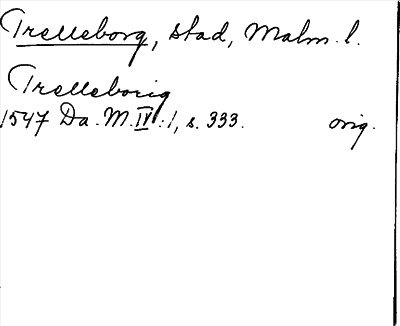 Trelleborg, stad, Malm. l.
Trelleborig
1547 Da. M. IV:1, s. 333. orig.